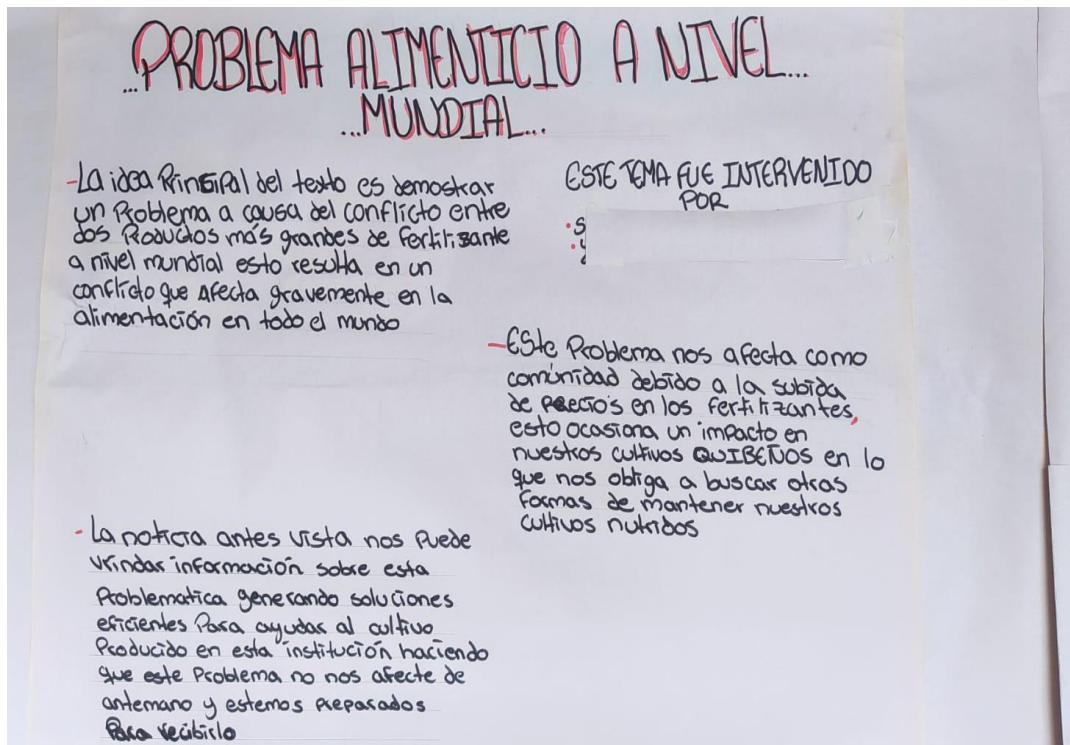 ...PROBLEMA ALIMENTICIO A NIVEL...
...MUNDIAL...
-La idea Prinsipal del texto es demostrar
un Problema a causa del conflicto entre
dos Productos más grandes de fertilisante
a nivel mundial esto resulta en un
conflicto que afecta gravemente en la
alimentación en todo el mundo
ESTE TEMA FUE INTERVENIDO
POR
-Este Problema nos afecta como
comunidad debido a la subida
de precios en los fertilizantes,
esto ocasiona un impacto en
nuestros cultivos QUIBEÑOS en lo
que nos obliga a buscar otras
formas de mantener nuestros
cultivos nutridos
- La noticia antes vista nos Puede
vrindar información sobre esta
Problematica generando soluciones
eficientes Para ayudar al cultivo
Producido en esta institución haciendo
que este Problema no nos afecte de
antemano y estemos preparados
Para recibirlo